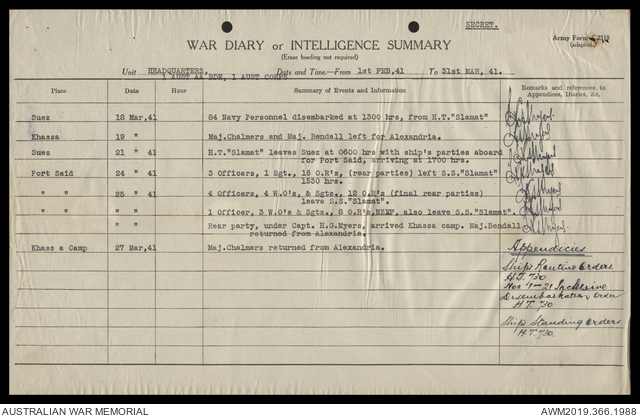 SECRET.
WAR DIARY or INTELLIGENCE SUMMARY
Army Form
(adapted)
(Erase heading not required)
Unit HEADQUARTERS, Date and Time.—From 1st FEB,41 To 31st MAR, 41.
1 AUST AA BDE, 1 AUST CORPS
Place Date Hour Summary of Events and Information Remarks and references to
Appendices, Diaries, &c.
Suez 18 Mar,41 84 Navy Personnel disembarked at 1300 hrs, from H.T."Slamat"
Khassa 19 " Maj.Chalmers and Maj. Bendall left for Alexandria.
Suez 21 " 41 H.T."Slamat" leaves Suez at 0600 hrs with ship's parties aboard
for Port Said, arriving at 1700 hrs.
Port Said 24 " 41 3 Officers, 1 Sgt., 16 O.R's, (rear parties) left S.S."Slamat"
1530 hrs.
" " 25 " 41 4 Officers, 4 W.O's, & Sgts., 12 O.R's (final rear parties)
leave S.S."Slamat".
" " " 1 Officer, 3 W.O's & Sgts., 8 O.R's,NZEF, also leave S.S."Slamat".
Rear party, under Capt. H.G.Myers, arrived Khassa camp. Maj.Bendall
returned from Alexandria.
Khass a Camp 27 Mar,41 Maj.Chalmers returned from Alexandria.
Appendicies
Ship's Routine Orders
H.T. 730
Nos 1-21 Inclusive
Disembarkation Order
H.T. 730
Ship's Standing Orders
H.T. 730.
AUSTRALIAN WAR MEMORIAL
AWM2019.366.1988